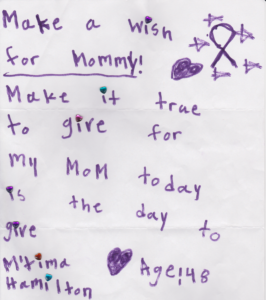 Make a wish
for Mommy!
Make it true
to give for
my MoM today
is the day to
give
M'tima
Hamilton
Age:48